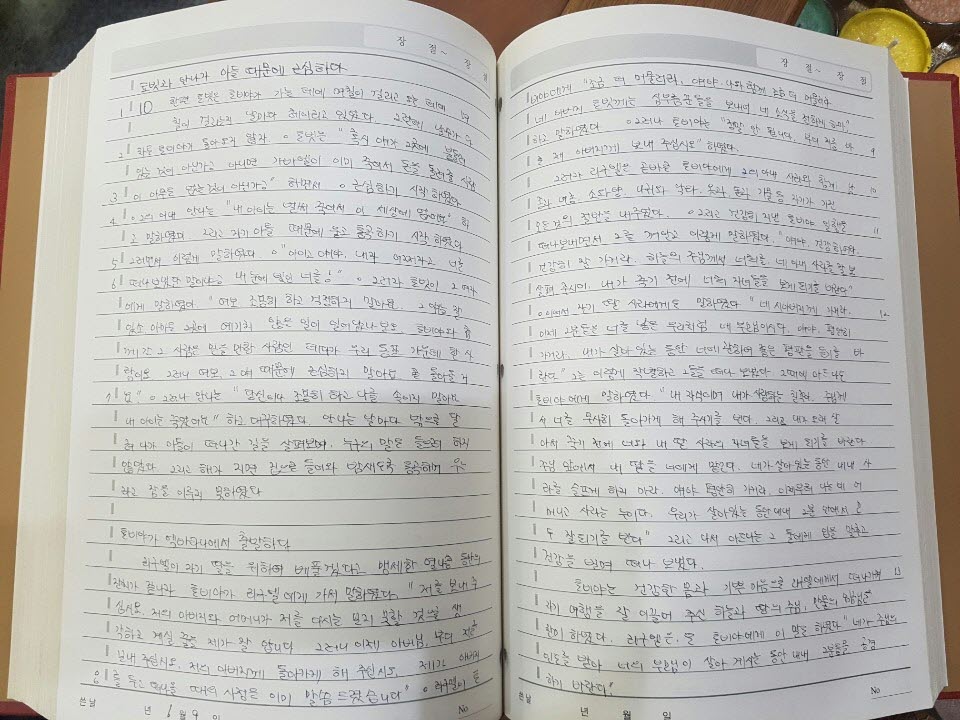 장 절~ 장 절
토빗과 안나가 아들 때문에 근심하다
1 10 한편 토빗은 토비야가 가는 데에 며칠이 걸리고 오는 데에 며
칠이 걸리는지 날마다 헤아리고 있었다 그런데 날수가 다
2 차도 토비야가 돌아오지 않자 토빗은 "혹시 애가 그곳에 붙들려
있는 것이 아닌가? 아니면 가바엘이 이미 죽어서 돈을 돌려줄 사람
3 이 아무도 없는 것이 아닌가?" 하면서 근심하기 시작하였다
4 그의 아내 안나는 "내 아이는 벌써 죽어서 이 세상에 없어요" 하
고 말하였다 그리고 자기 아들 때문에 울고 통곡하기 시작하였다
5 그러면서 이렇게 말하였다 "아이고 얘야, 내가 어쩌자고 너를
6 떠나보냈단 말이냐? 내 눈에 빛인 너를!" 그러자 토빗이 그 여자
에게 말하였다 "여보, 조용히 하고 걱정하지 말아요. 그 애는 잘
있소 아마도 그곳에 예기치 않은 일이 일어났나 보오. 토비야와 함
께 간 그 사람은 믿을 만한 사람인 데다가 우리 동포 가운데 한 사
람이오 그러니 여보, 그 애 때문에 근심하지 말아요 곧 돌아올 거
7 요" 그러나 안나는 "당신이나 조용히 하고 나를 속이지 말아요
내 아이는 죽었어요" 하고 대꾸하였다. 안나는 날마다 밖으로 달
려 나가 아들이 떠나간 길을 살펴보았다. 누구의 말도 들으려 하지
않았다 그리고 해가 지면 집으로 들어와 밤새도록 통곡하며 우느
라고 잠을 이루지 못하였다
토비야가 엑바타나에서 출발하다
라구엘이 자기 딸을 위하여 베풀겠다고 맹세한 열나흘 동안의
잔치가 끝나자 토비야가 라구엘에게 가서 말하였다. "저를 보내 주
십시오. 저의 아버지와 어머니가 저를 다시는 보지 못할 것으로 생
각하고 계실 줄을 제가 잘 압니다 그러니 이제 아버님, 부디 저를
보내 주십시오. 저의 아버지께 돌아가게 해 주십시오. 제가 아버지
8 를 두고 떠나올 때의 사정은 이미 말씀 드렸습니다" 라구엘이 토
쓴날 년 6 월 9 일 No
장 절~ 장 절
비야에게 "조금 더 머물러라, 얘야. 나와 함께 조금 더 머물러라
네 아버지 토빗께는 심부름꾼들을 보내어 네 소식을 전하게 하마,"
하고 말하였다 그러나 토비야는 "정말 안 됩니다. 부디 저를 바 9
로 제 아버지께 보내 주십시오" 하였다.
그러자 라구엘은 곧바로 토비야에게 그의 아내 사라와 함께 남 10
종과 여종, 소와 양, 나귀와 낙타. 옷과 돈과 기물 등 자기가 가진
모든 것의 절반을 내주었다. 그리고 건강히 지낸 토비야 일행을 11
떠나보내면서 그를 껴안고 이렇게 말하였다. "얘야, 건강하여라.
건강히 잘 가거라. 하늘의 주님께서 너희를, 네 아내 사라를 잘 보
살펴 주시어, 내가 죽기 전에 너희의 자녀들을 보게 되기를 바란다"
이어서 자기 딸 사라에게도 말하였다 "네 시아버지께 가거라. 12
이제 그분들은 너를 낳은 우리처럼 네 부모님이시다. 얘야, 평안히
가거라. 내가 살아 있는 동안 너에 관하여 좋은 평판을 듣기를 바
란다" 그는 이렇게 작별하고 그들을 떠나 보냈다 그때에 아드나도
토비야에게 말하였다. "내 자식이며 내가 사랑하는 친족아. 주님께
서 너를 무사히 돌아가게 해 주시기를 빈다. 그리고 내가 오래 살
아서 죽기 전에 너와 내 딸 사라의 자녀들을 보게 되기를 바란다
주님 앞에서 내 딸을 너에게 맡긴다. 네가 살아 있는 동안 내내 사
라를 슬프게 하지 마라. 얘야 평안히 가거라. 이제부터 나는 네 어
머니고 사라는 누이다. 우리가 살아있는 동안 내내 그분 안에서 모
두 잘되기를 빈다" 그리고 나서 아드나는 그 둘에게 입을 맞추고
건강을 빌며 떠나 보냈다.
토비야는 건강한 몸과 기쁜 마음으로 라구엘에게서 떠나가며 13
자기 여행을 잘 이끌어 주신 하늘과 땅의 주님, 만물의 임금님을
찬미하였다. 라구엘은, 또 토비야에게 이 말을 하였다 "네가 주님의
인도를 받아 너의 부모님이 살아 계시는 동안 내내 그분들을 공경
하기 바란다"
쓴날 년 월 일 No